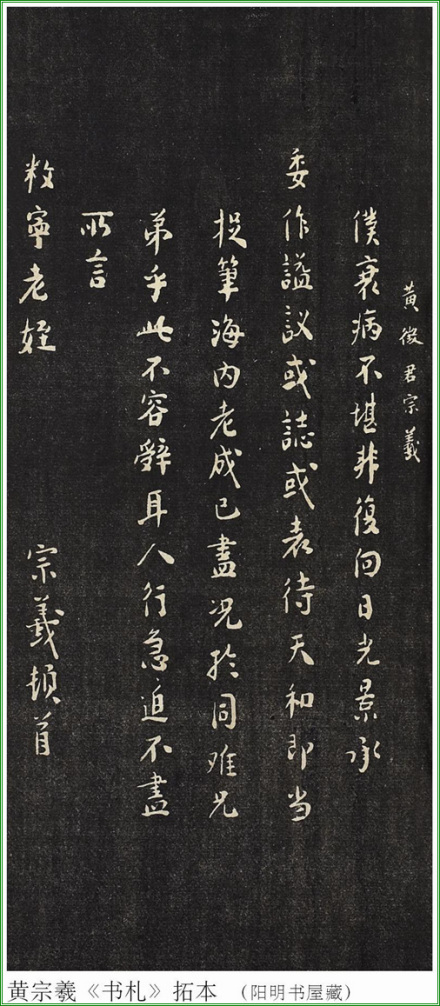 黄徵君宗羲
僕衰病不堪非復向日光景承
委作謚議或誌或表待天和即当
捉筆海内老成已盡况於同难兄
弟乎此不容辭耳人行急迫不盡
所言
敉寧老姪
宗羲頓首
黄宗羲《书札》拓本 (阳明书屋藏)